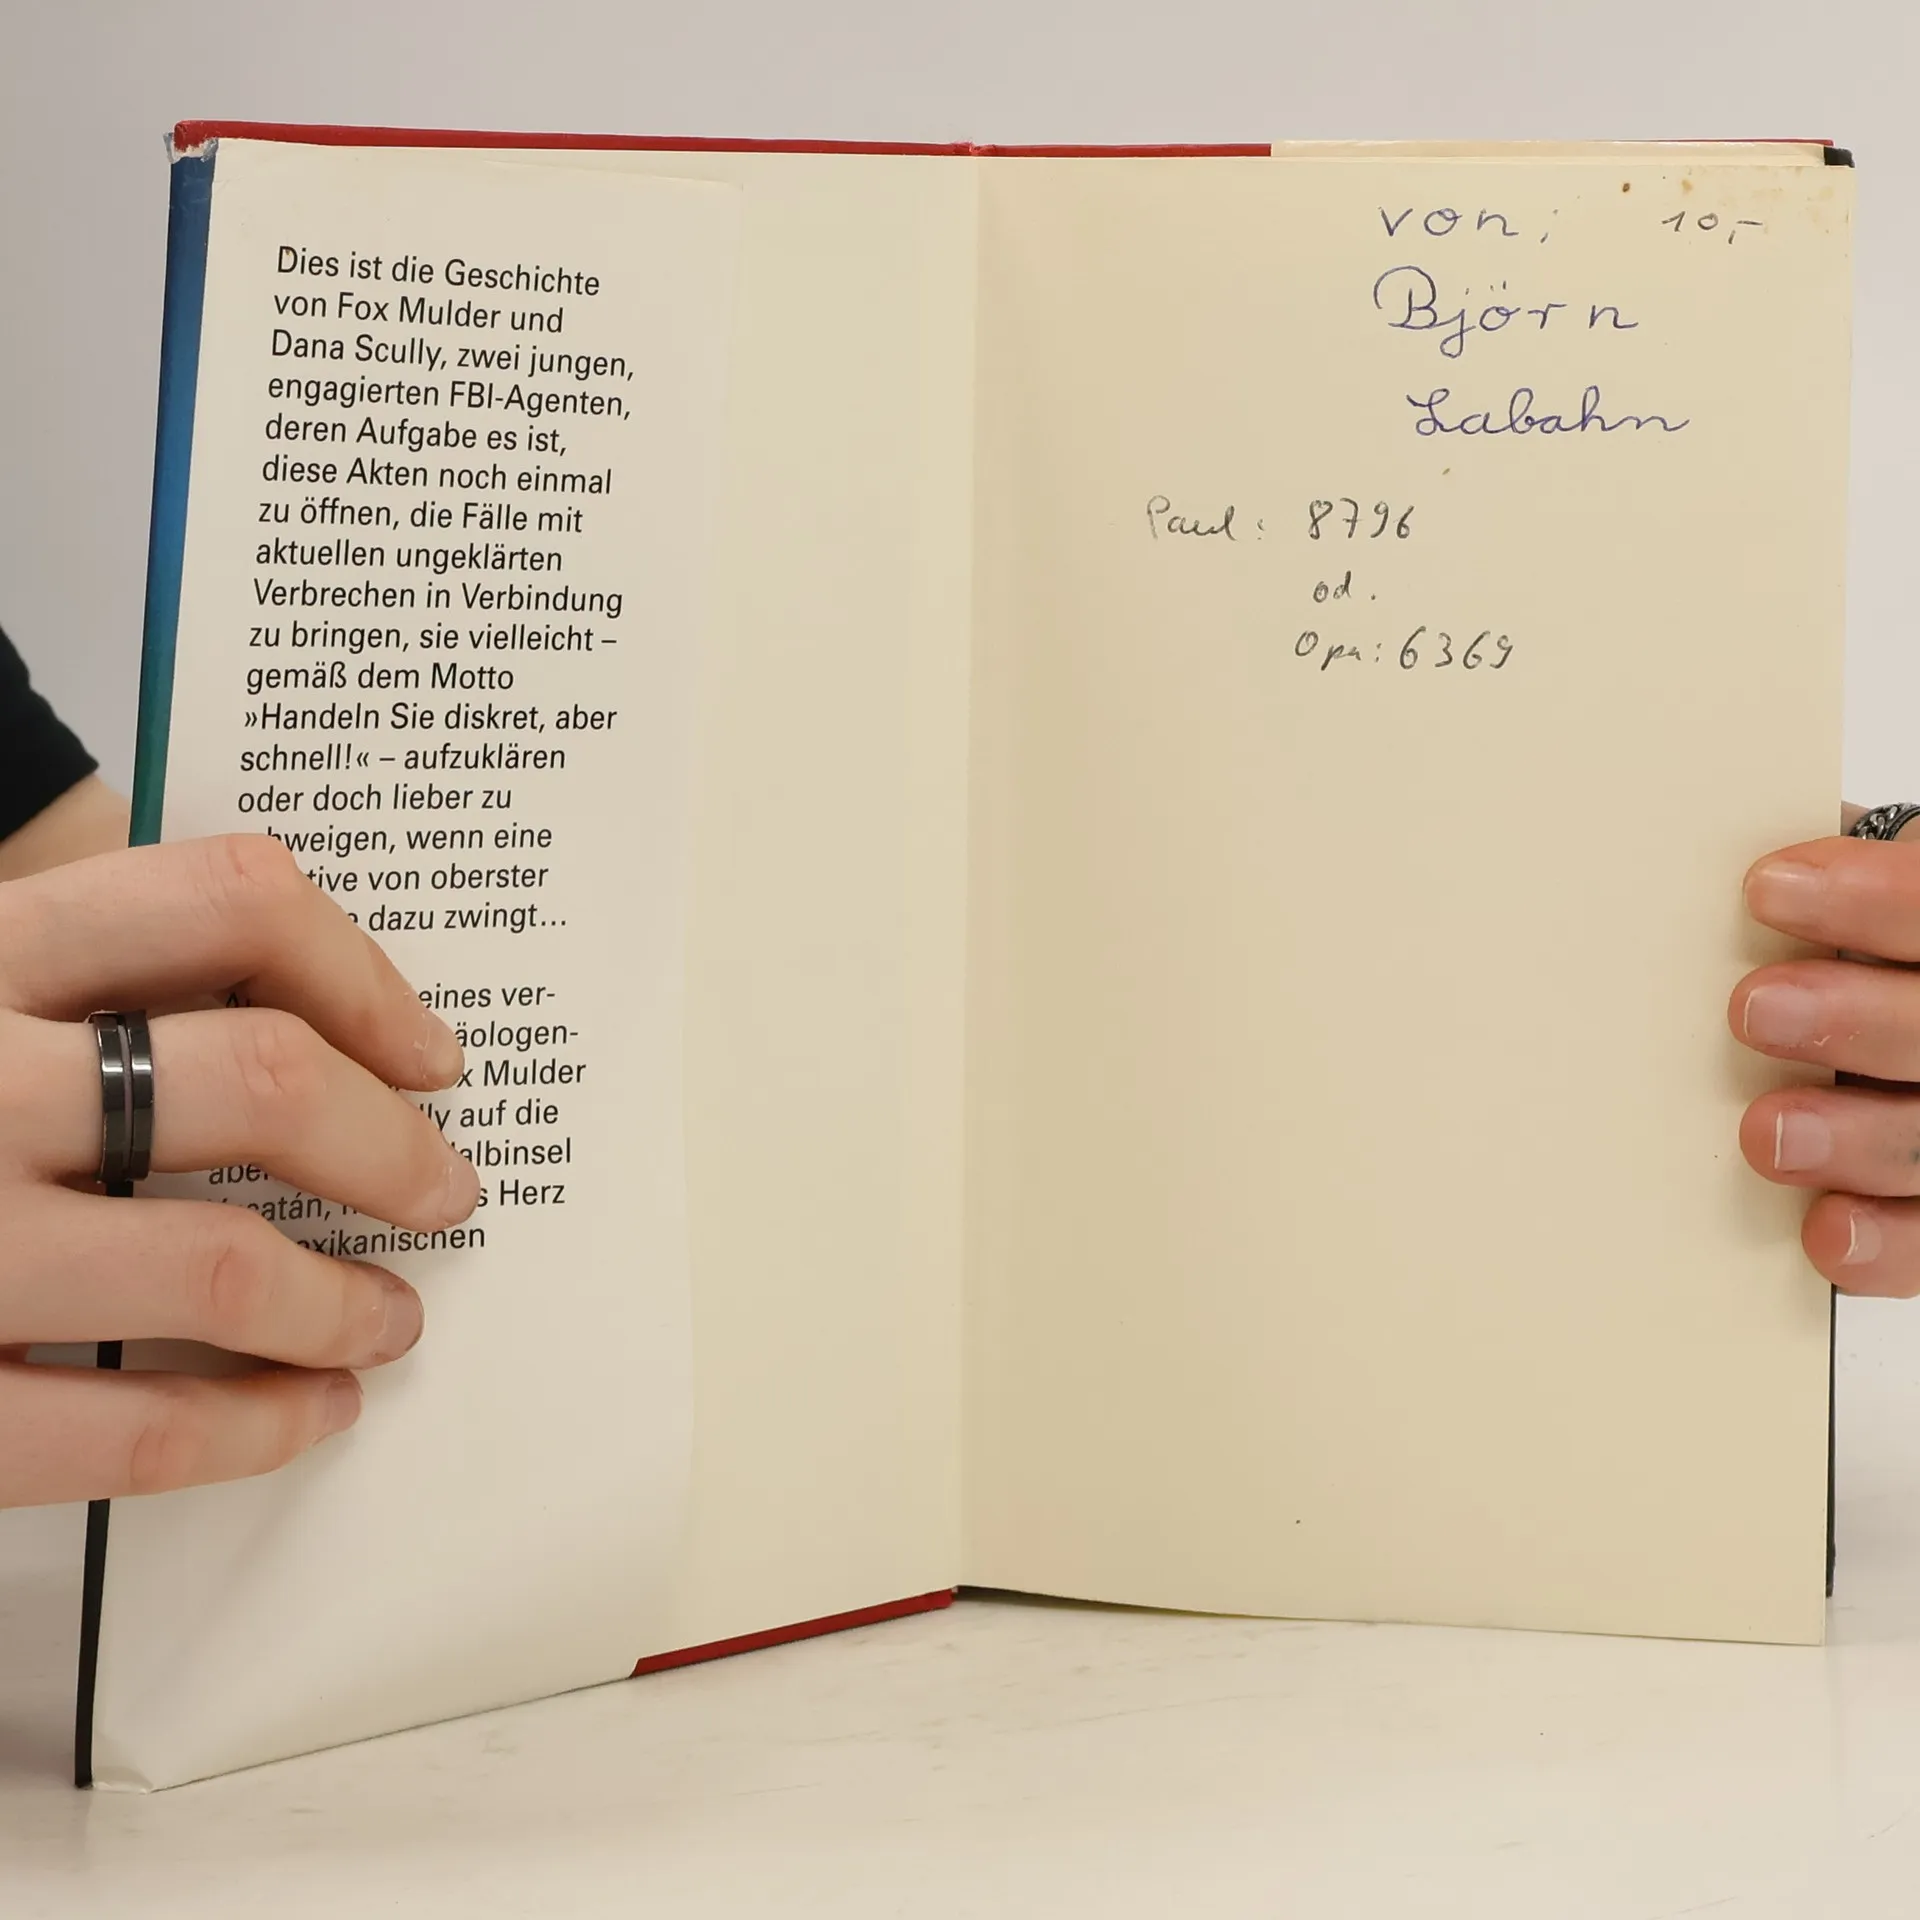 Dies ist die Geschichte
von Fox Mulder und
Dana Scully, zwei jungen,
engagierten FBI-Agenten,
deren Aufgabe es ist,
diese Akten noch einmal
zu öffnen, die Fälle mit
aktuellen ungeklärten
Verbrechen in Verbindung
zu bringen, sie vielleicht –
gemäß dem Motto
»Handeln Sie diskret, aber
schnell!« – aufzuklären
oder doch lieber zu
hweigen, wenn eine
tive von oberster
dazu zwingt...
eines ver-
äologen-
x Mulder
lly auf die
albinsel
s Herz
atán,
exikanischen
von: 10,-
Björn
Labahn
Paul: 8796
od.
Opa: 6369